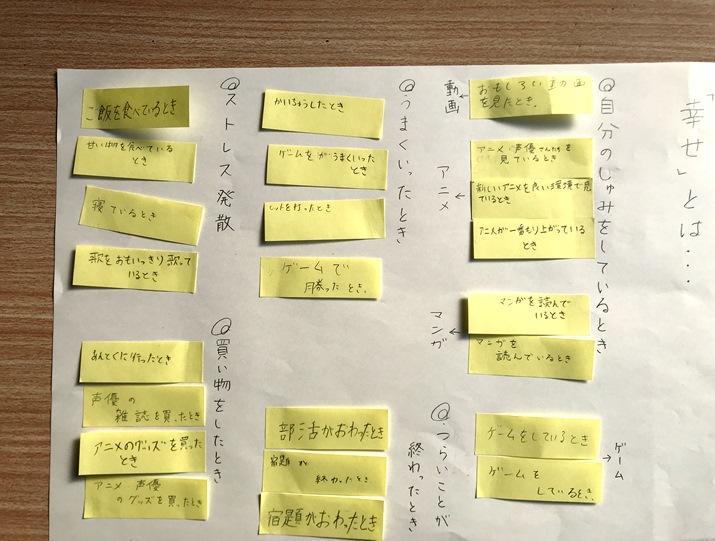 「幸せ」とは…
◎自分のしゅみをしているとき
動画
おもしろい動画
を見たとき。
アニメ
アニメ、声優さんたちを
見ているとき
新しいアニメを良い環境で見
ているとき
アニメが一番もり上がっている
とき
マンガ
マンガを読んで
いるとき
マンガを
読んでいるとき
ゲーム
ゲームをしているとき
ゲームを
しているとき。
◎うまくいったとき
かいちゅうしたとき
ゲームをがうまくいった
とき
ヒットを打ったとき
ゲームで
勝ったとき。
◎つらいことが
終わったとき
部活がおわったとき
宿題が
終わったとき
宿題がおわったとき
◎ストレス発散
ご飯を食べているとき
甘い物を食べている
とき
寝ているとき
歌をおもいっきり歌って
いるとき
◎買い物をしたとき
あんてくに行ったとき
声優の
雑誌を買ったとき
アニメのグッズを買った
とき
アニメ 声優
のグッズを買ったとき